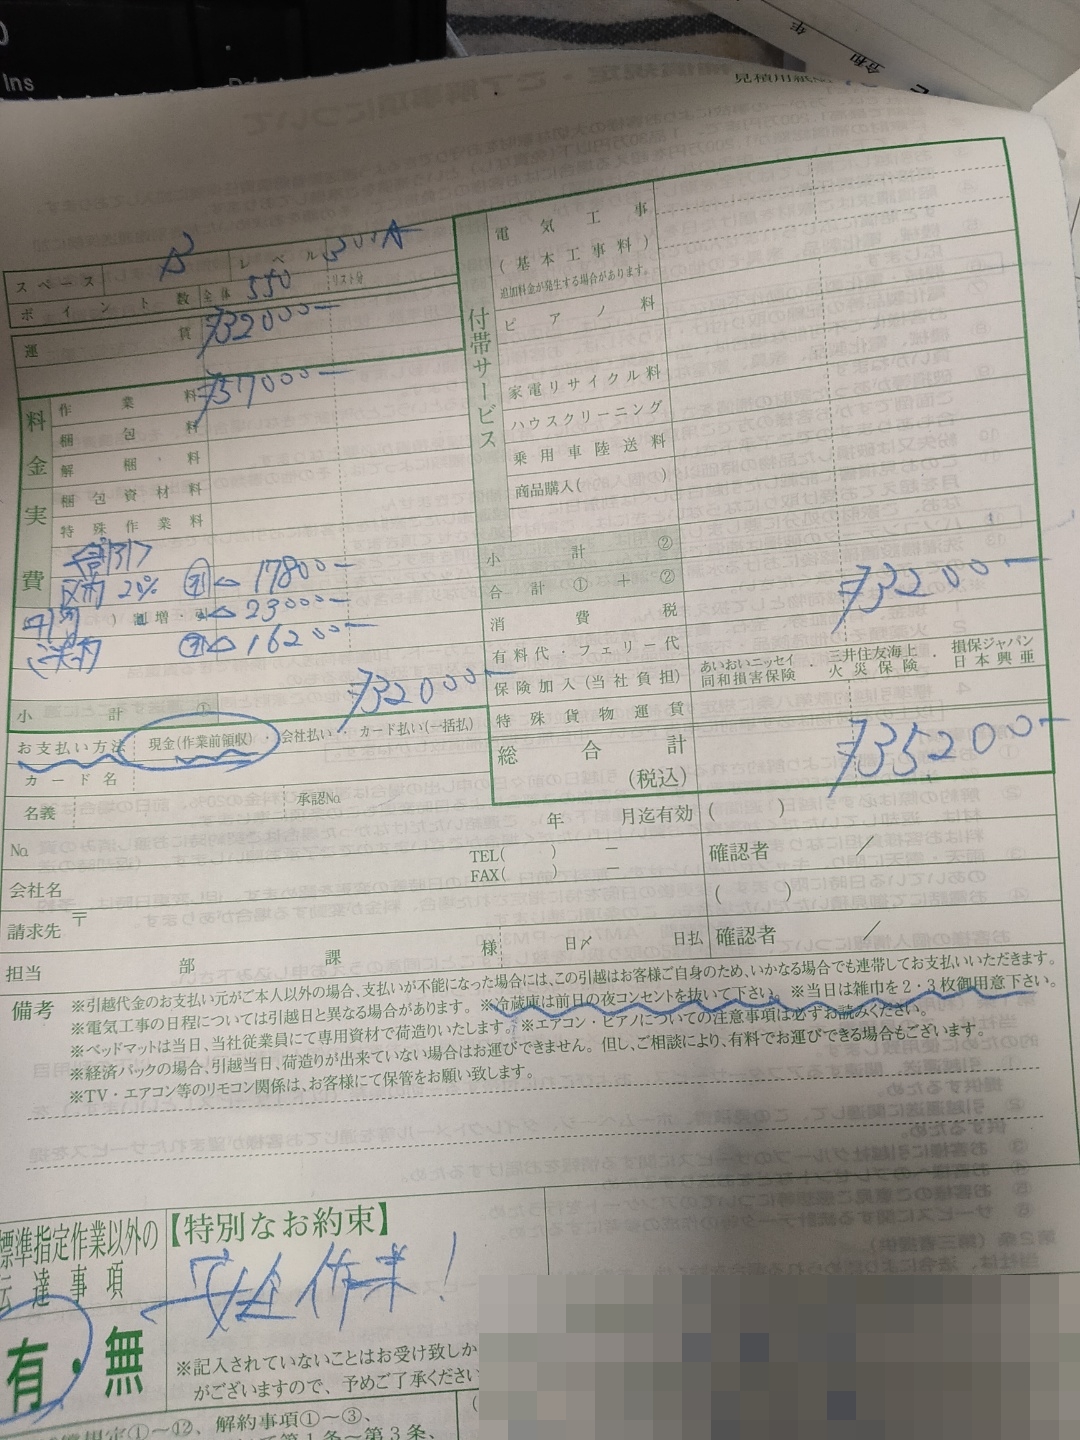 Ins
令和 年
スペース B レベル 300A
ポイント数 全体 550 リスト分
運賃 ¥32000-
料金実費
作業料 ¥57000-
梱包料
解梱料
梱包資材料
特殊作業料
割引
20% △17800-
割増・引 △23000-
△16200-
小計 ① ¥32000-
付帯サービス
電気工事
(基本工事料)
追加料金が発生する場合があります。
ピアノ料
家電リサイクル料
ハウスクリーニング
乗用車陸送料
商品購入( )
小計 ②
合計 ① + ② ¥32000-
消費税
有料代・フェリー代
保険加入(当社負担) あいおいニッセイ同和損害保険 ・ 三井住友海上火災保険 ・ 損保ジャパン日本興亜
特殊貨物運賃
総合計
(税込) ¥35200-
お支払い方法 現金(作業前領収) 会社払い・カード払い(一括払)
カード名
名義 承認No.
年 月迄有効 ( )
No. TEL( ) ー 確認者 /
会社名 FAX( ) ー
請求先 〒 ( )
担当 部 課 様 日〆 日払 確認者 /
備考 ※引越代金のお支払い元がご本人以外の場合、支払いが不能になった場合には、この引越はお客様ご自身のため、いかなる場合でも連帯してお支払いいただきます。
※電気工事の日程については引越日と異なる場合があります。※冷蔵庫は前日の夜コンセントを抜いて下さい。※当日は雑巾を2・3枚御用意下さい。
※ベッドマットは当日、当社従業員にて専用資材で荷造りいたします。※エアコン・ピアノについての注意事項は必ずお読みください。
※経済パックの場合、引越当日、荷造りが出来ていない場合はお運びできません。但し、ご相談により、有料でお運びできる場合もございます。
※TV・エアコン等のリモコン関係は、お客様にて保管をお願い致します。
標準指定作業以外の
伝達事項
有・無
【特別なお約束】
安全作業!
※記入されていないことはお受け致しか
がございますので、予めご了承ください
規定①~⑫、解約事項①~③、
第1条~第3条、